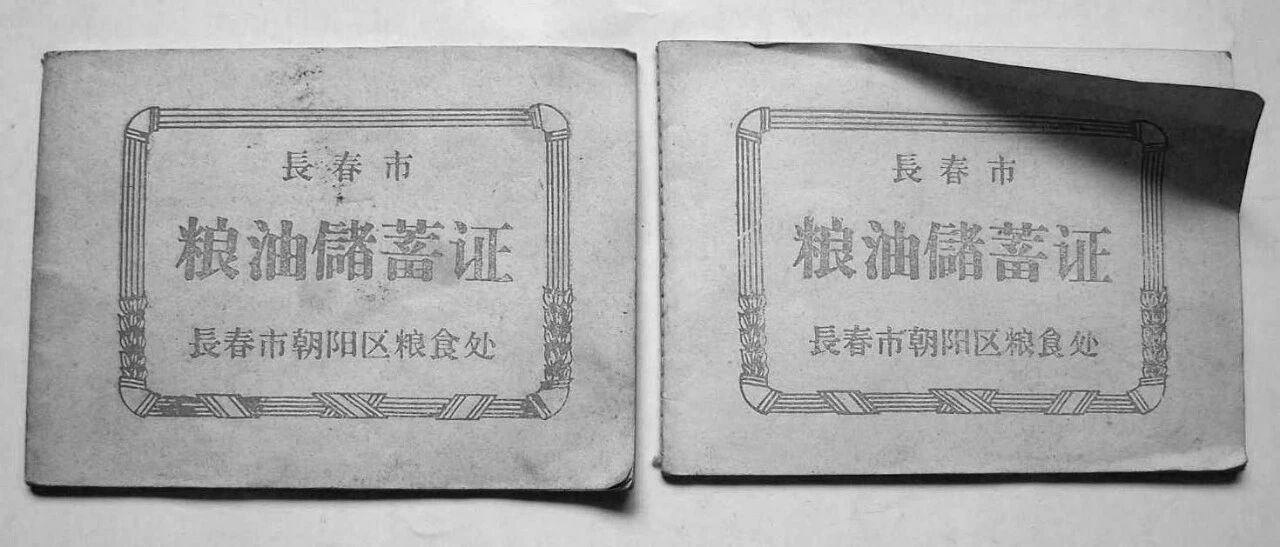 長春市
粮油儲蓄证
長春市朝阳区粮食处
長春市
粮油儲蓄证
長春市朝阳区粮食处